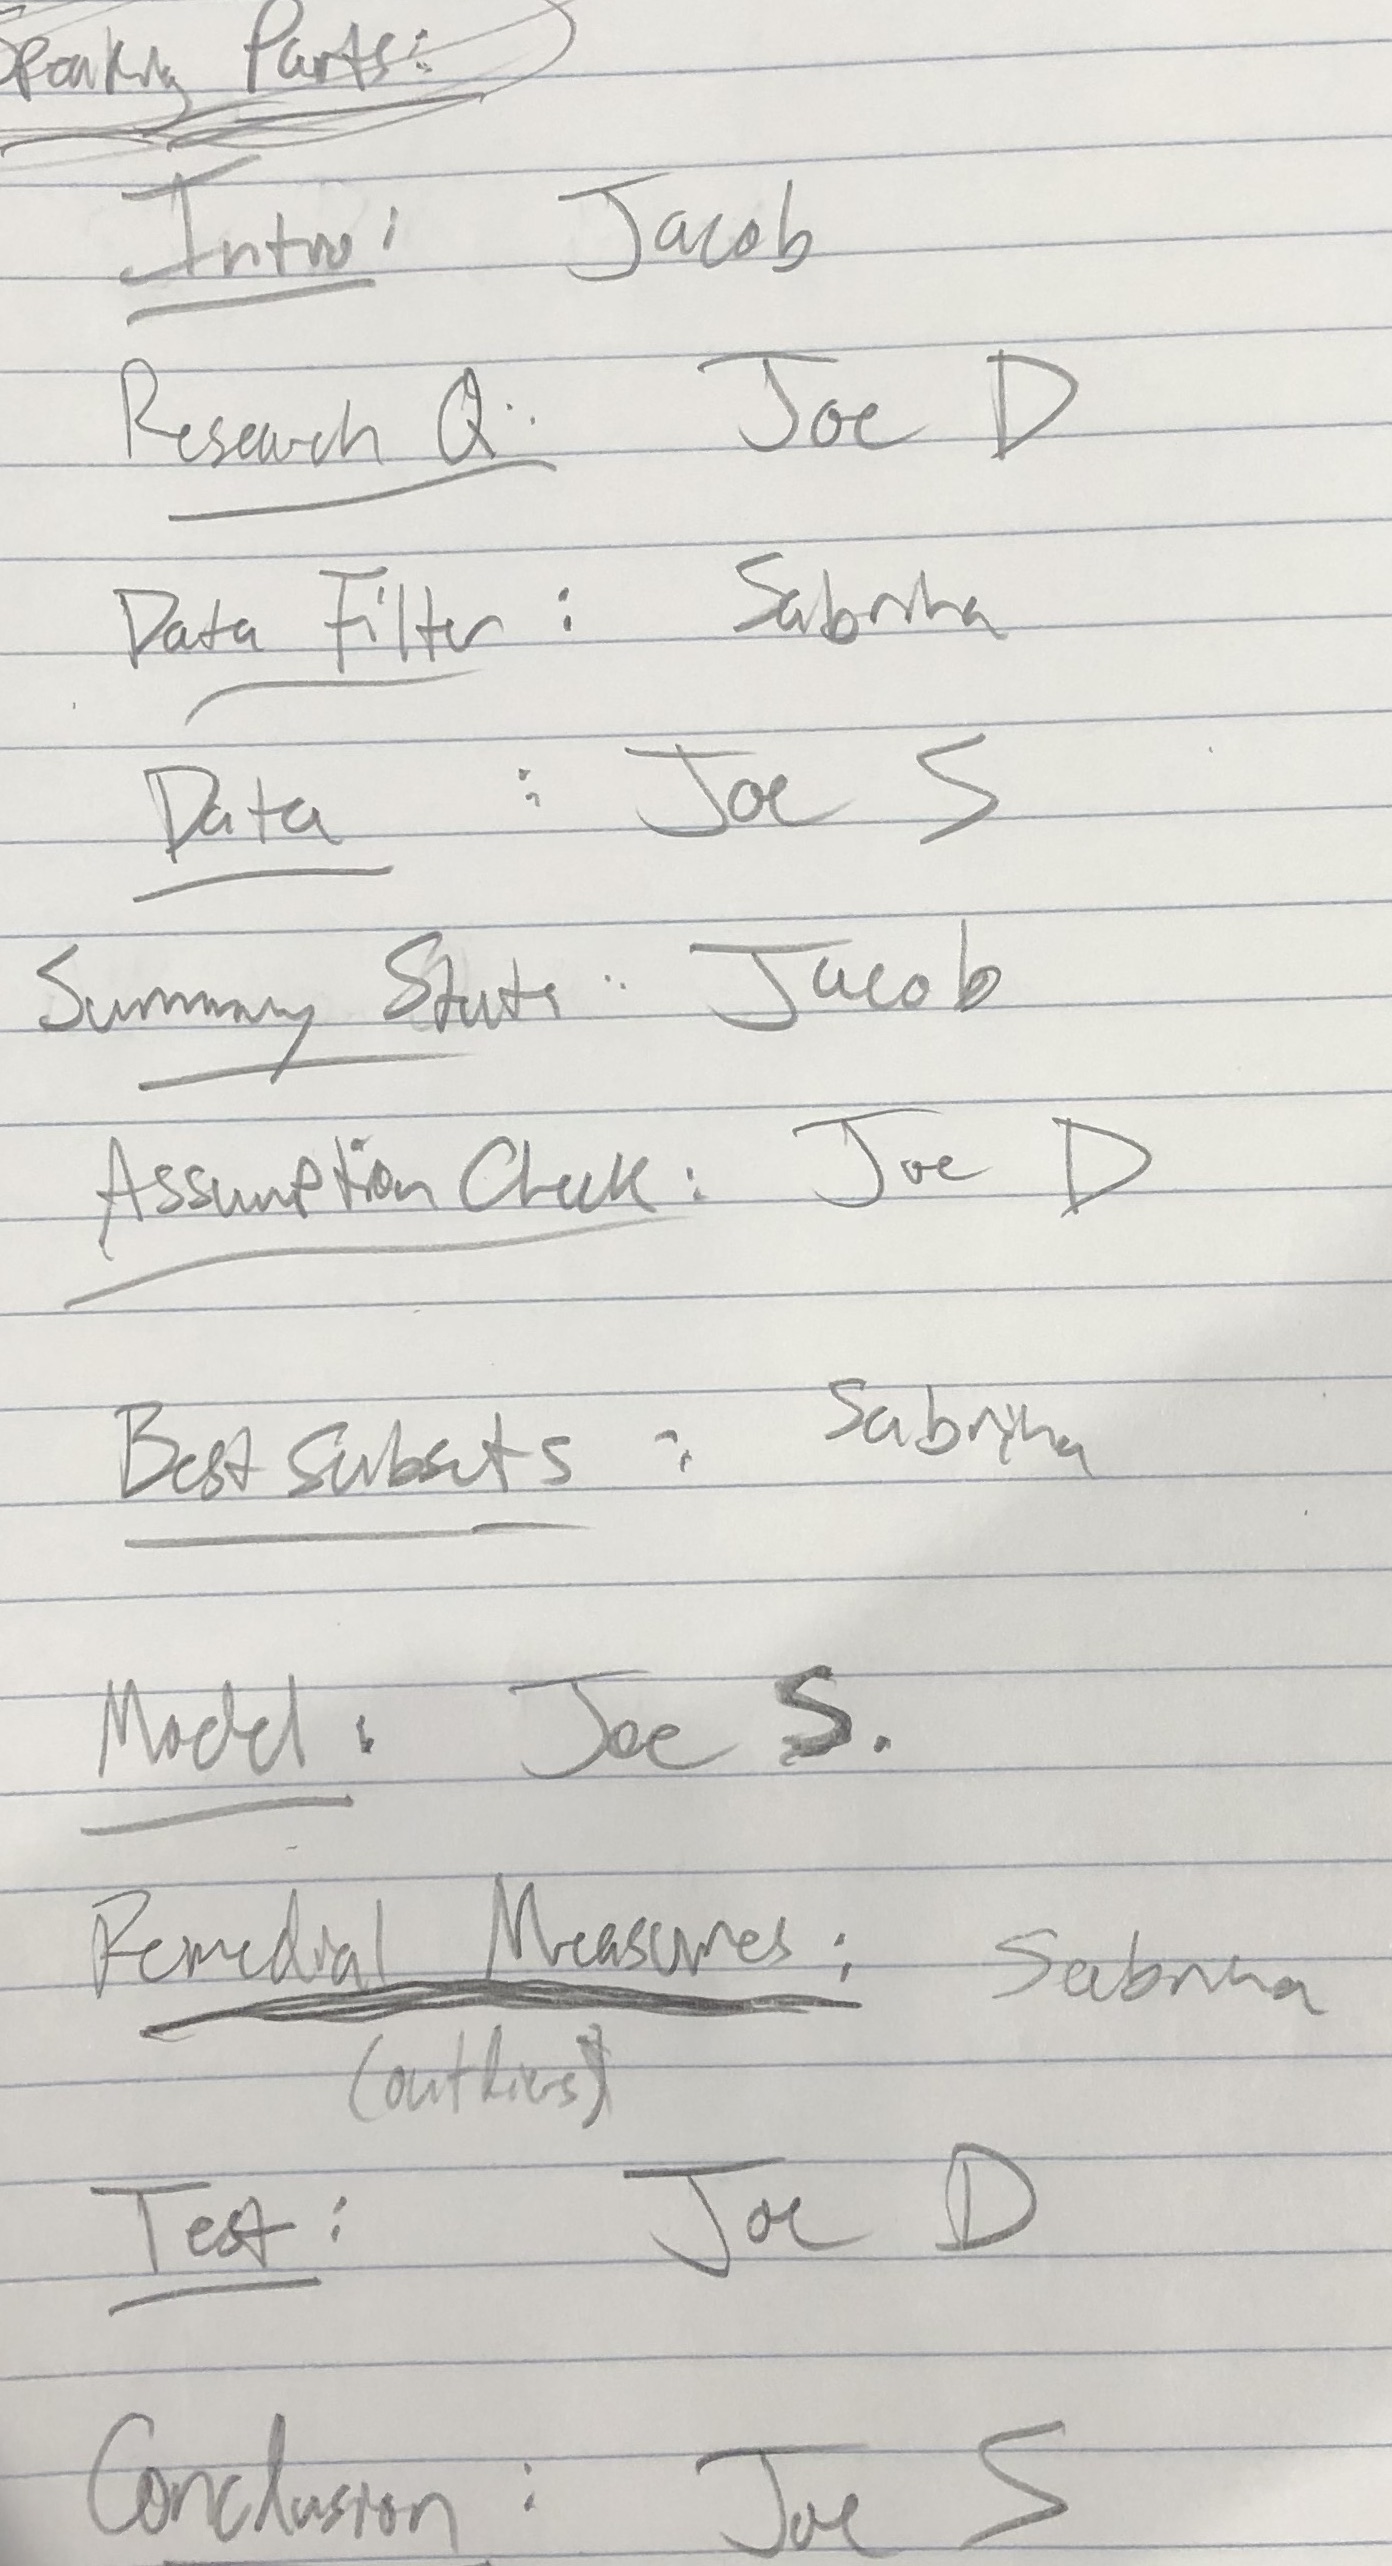 Speaking Parts:
Intro: Jacob
Research Q: Joe D
Data Filter: Sabrina
Data : Joe S
Summary Stats: Jacob
Assumption Check: Joe D
Best Subsets : Sabrina
Model: Joe S.
Remedial Measures: Sabrina
(outliers)
Test: Joe D
Conclusion: Joe S